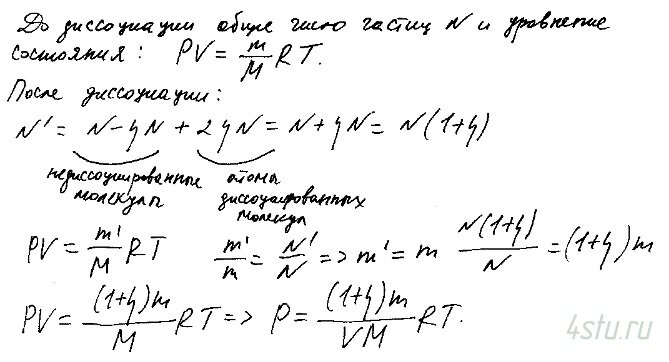 До диссоциации общее число частиц N и уравнение
состояния: PV = m/M RT.
После диссоциации:
N' = N - ηN + 2ηN = N + ηN = N(1+η)
недиссоциированные молекулы
атомы диссоциированных молекул
PV = m'/M RT m'/m = N'/N => m' = m N(1+η)/N = (1+η)m
PV = (1+η)m/M RT => P = (1+η)m/VM RT.
4stu.ru